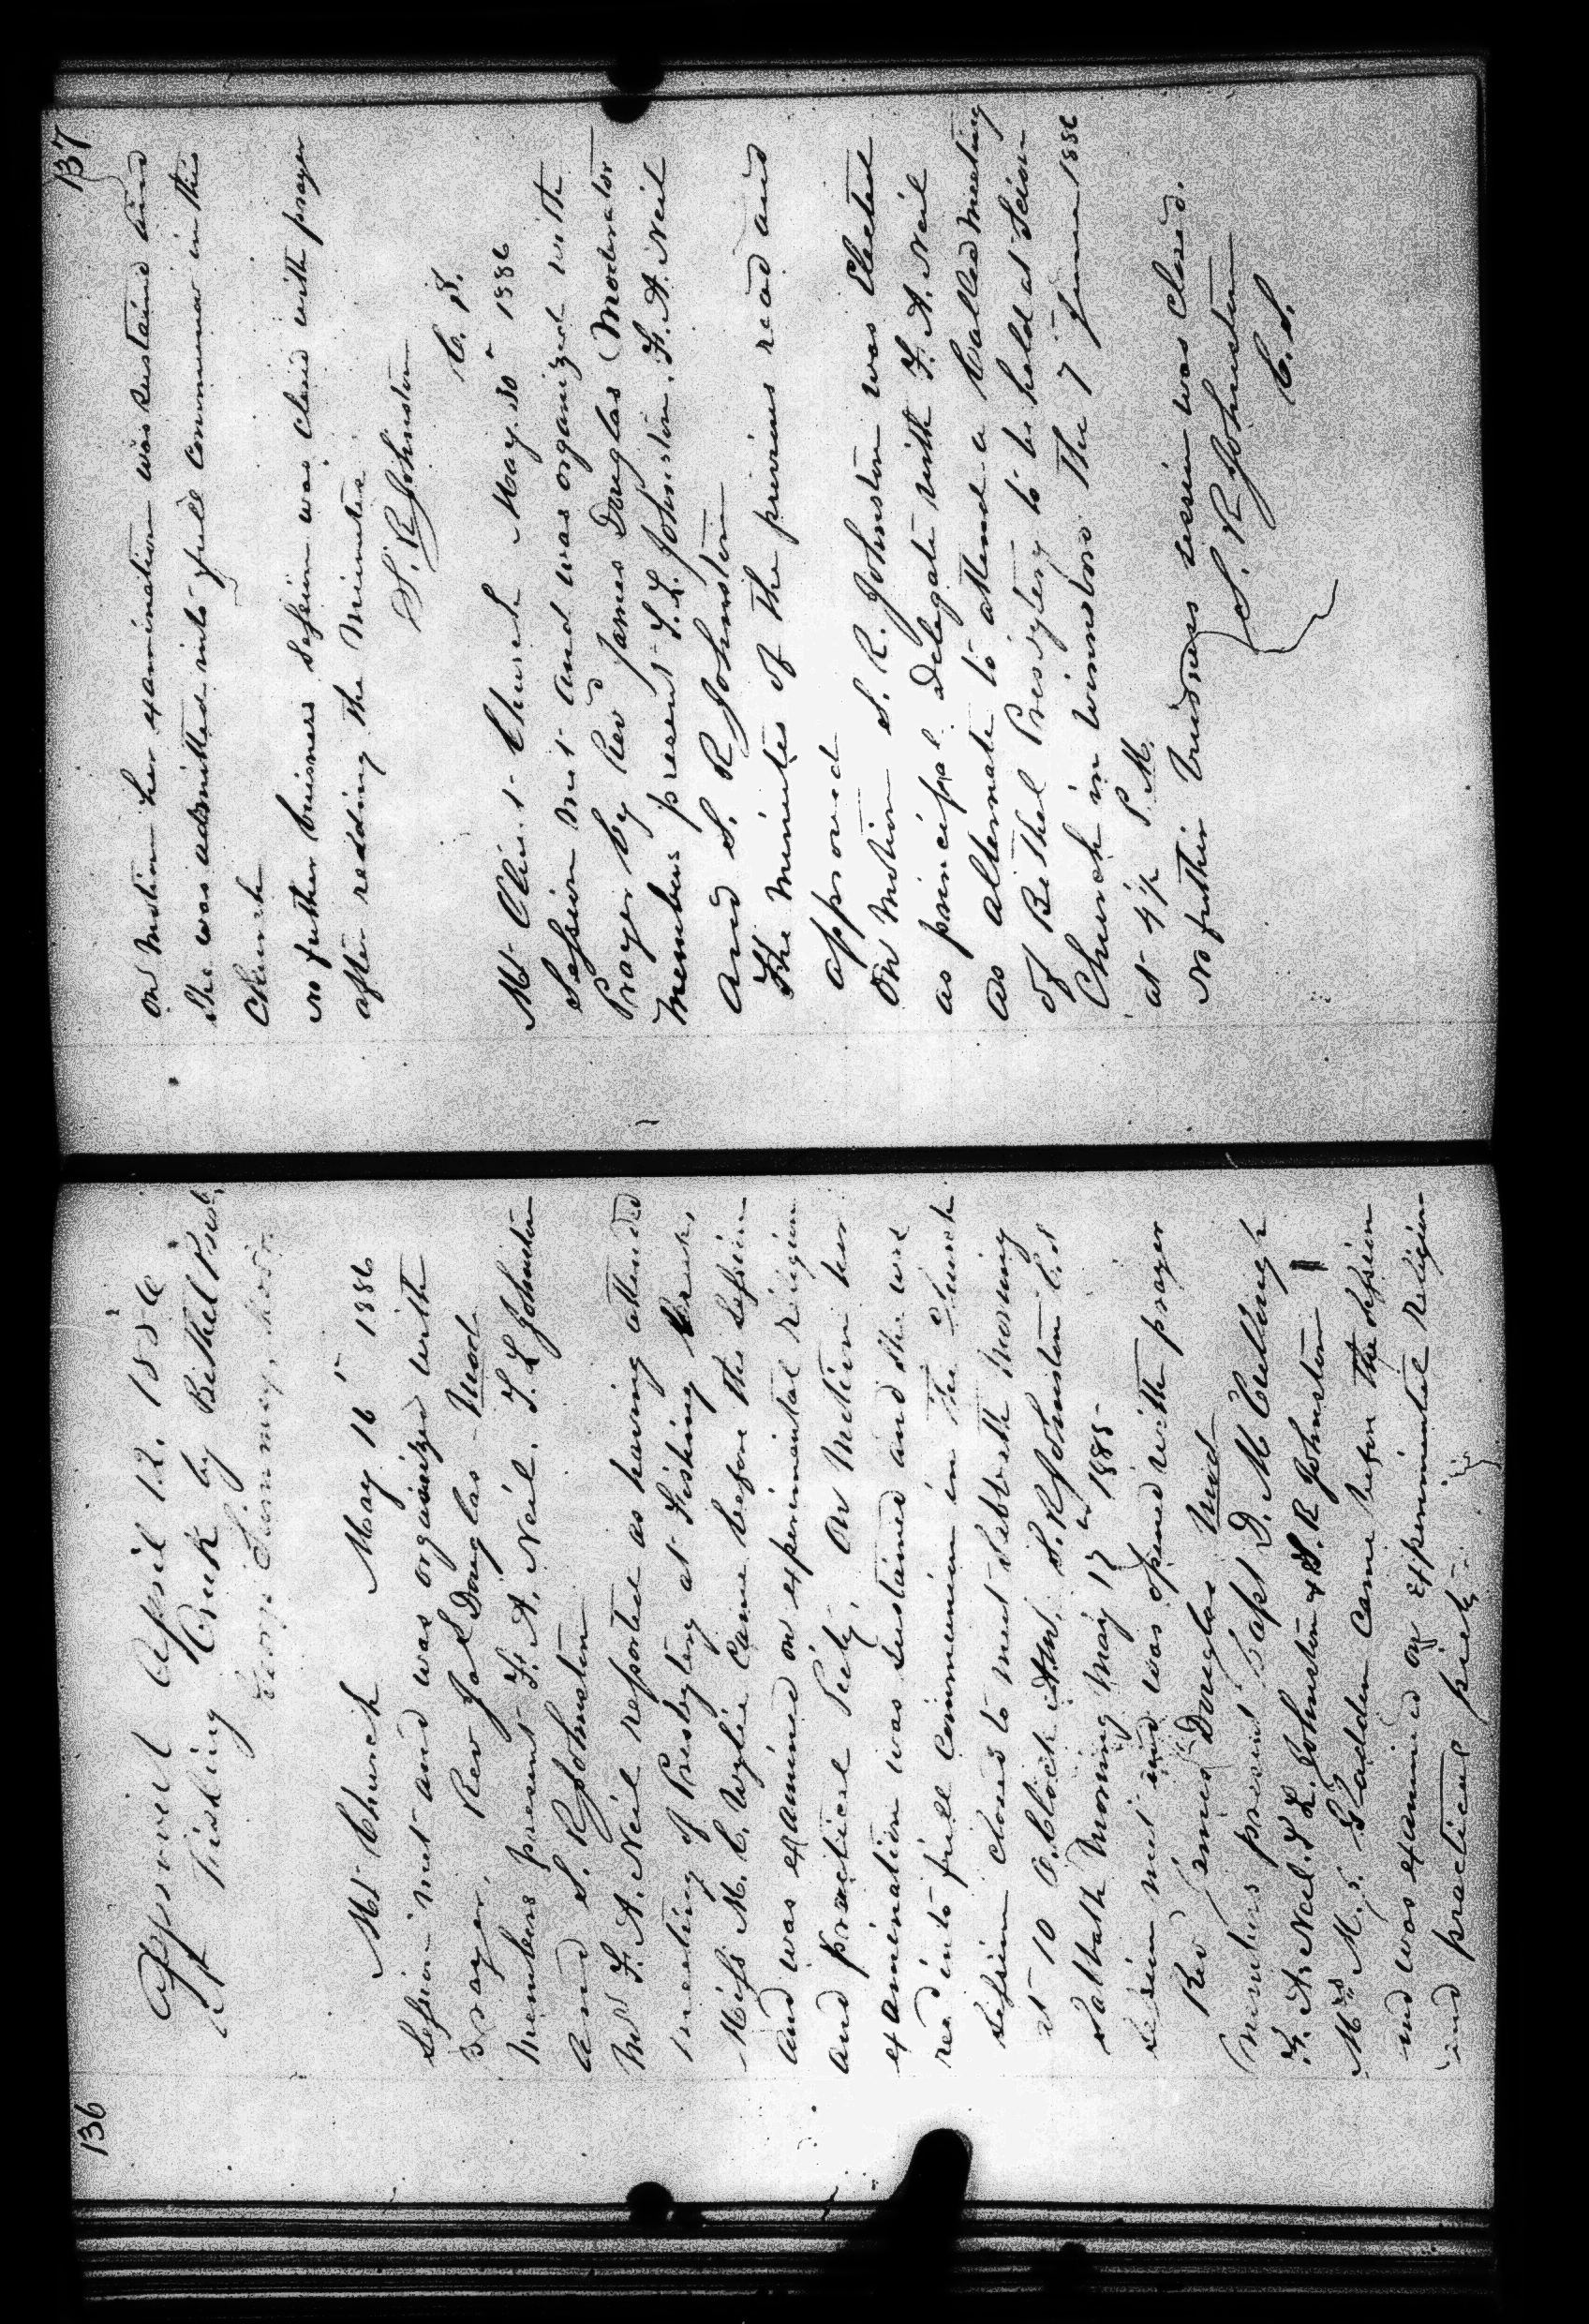 136
Approved April 12. 1886
at Fishing Creek by Bethel Presb.
George Summey, Mod.
Mt Church May 16" 1886
Session met and was organized with
Prayer. Rev Jas Douglas - Mod
Members present F. A. Neil. T. L Johnston
and S. R Johnston
Mr F. A. Neil reported as having attended
meeting of Presbytery at Fishing Creek,
Miss M. C. Wylie Came before the Session
and was examined on experimental religion
and practical Piety, On Motion her
examination was sustained and she was
red into full communion in the Church
Session closed to meet Sabbath Morning
at 10 O,Clock A.M. S. R Johnston C.S
Sabbath Morning May 17" 1885-
Session met and was opened with prayer
Rev James Douglas Mod
Members present Capt D. M Cullough
F. A. Neil. T L. Johnston & S. R Johnston
Mrs M. J. Gladden Came before the Session
and was examined on experimental Religion
and practical piety
137
On Motion her examination was sustaind and
she was admitted into full communion in the
Church
No futher buisness Session was closed with prayer
after reading the Minutes
S. R Johnston
C. S.
Mt Olivet Church May. 30" 1886
Session met and was organized with
Prayer by Rev James Douglas Moderator
Members present T. L. Johnston, F. A. Neil
and S. R Johnston
The Minutes of the previous read and
approved
On Motion S. R. Johnston was Elected
as principal Delegate with F. A. Neil
as alternate to attend a Called Meeting
of Bethel Presbytery to be held at Scion
Church in Winnsboro The 7" June 1886
at 4½ P. M.
No futher buisness session was closed.
S. R Johnston
C. S.